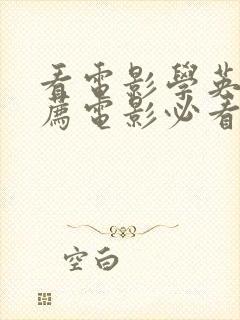 看電影學英
薦電影必看
空白